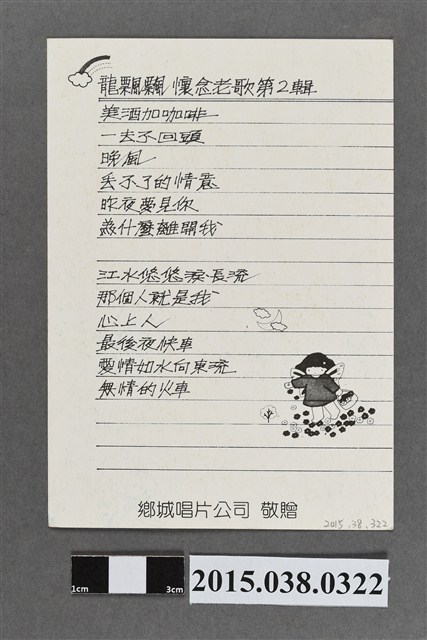 龍飄飄 懷念老歌第2輯
美酒加咖啡
一去不回頭
晚風
丟不了的情意
昨夜夢見你
為什麼離開我
江水悠悠淚長流
那個人就是我
心上人
最後夜快車
愛情如水向東流
無情的火車
鄉城唱片公司 敬贈
2015.38.322
1cm
3cm
2015.038.0322